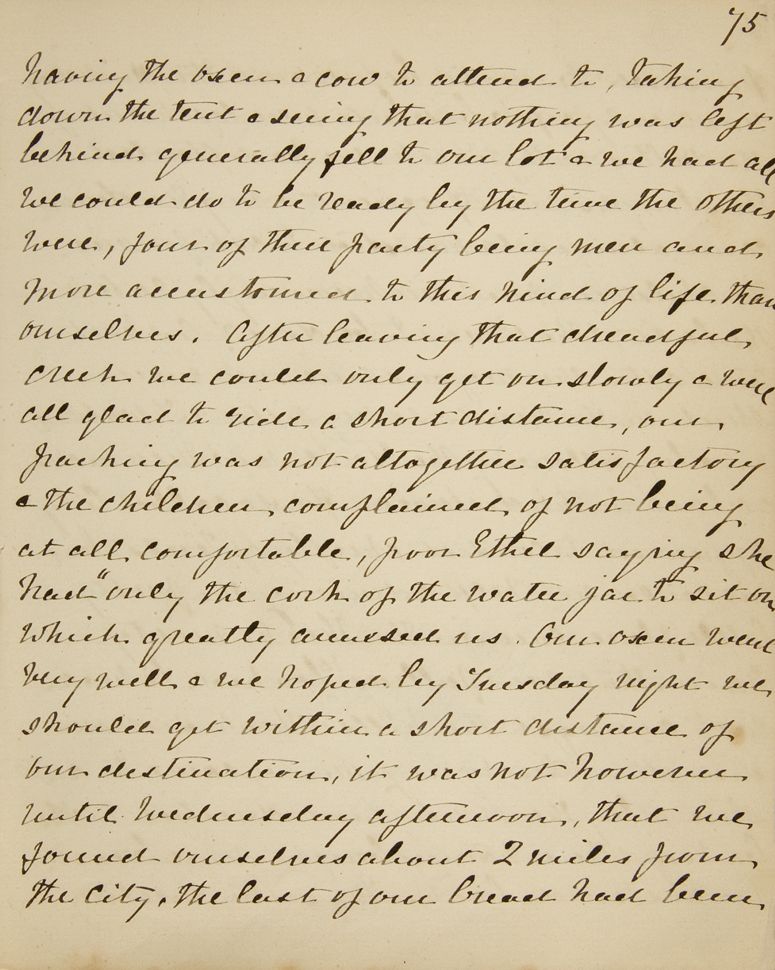 75
having the oxen & cow to attend to, taking
down the tent & seeing that nothing was left
behind generally fell to our lot & we had all
we could do to be ready by the time the others
were, four of their party being men and
more accustomed to this kind of life than
ourselves. After leaving that dreadful
creek we could only get on slowly & were
all glad to ride a short distance, our
packing was not altogether satisfactory
& the children complained of not being
at all comfortable, poor Ethel saying she
had "only the cork of the water jar to sit on
which greatly amused us. Our oxen went
very well & we hoped by Tuesday night we
should get within a short distance of
our destination, it was not however
until Wednesday afternoon, that we
found ourselves about 2 miles from
the city, the last of our bread had been